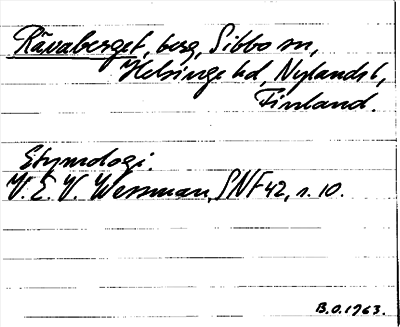 Rävaberget, berg, Sibbo sn,
Helsinge hd, Nylands l,
Finland.
Etymologi.
V. E. V. Wessman, SNF 42, s. 10.
B.O. 1963.